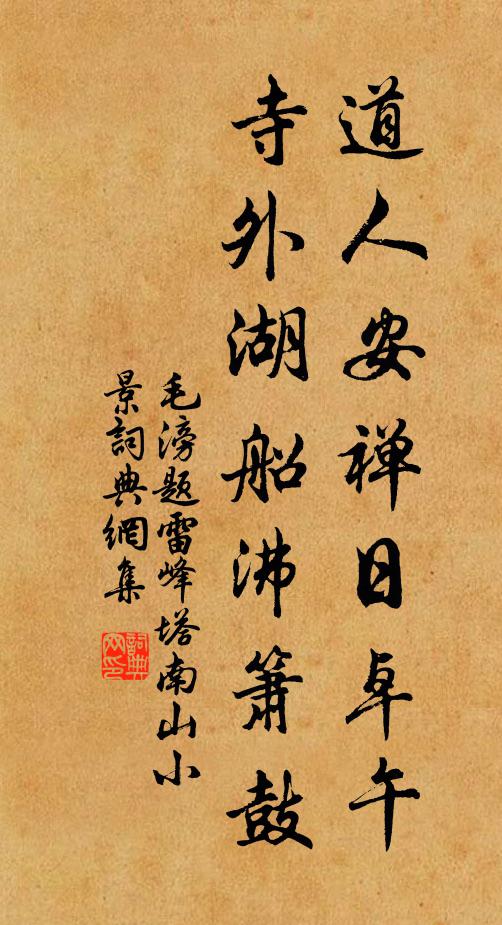 道人安禅日卓午
寺外湖船沸箫鼓
毛滂题雷峰塔南山小
景詞典網集
詞典網印